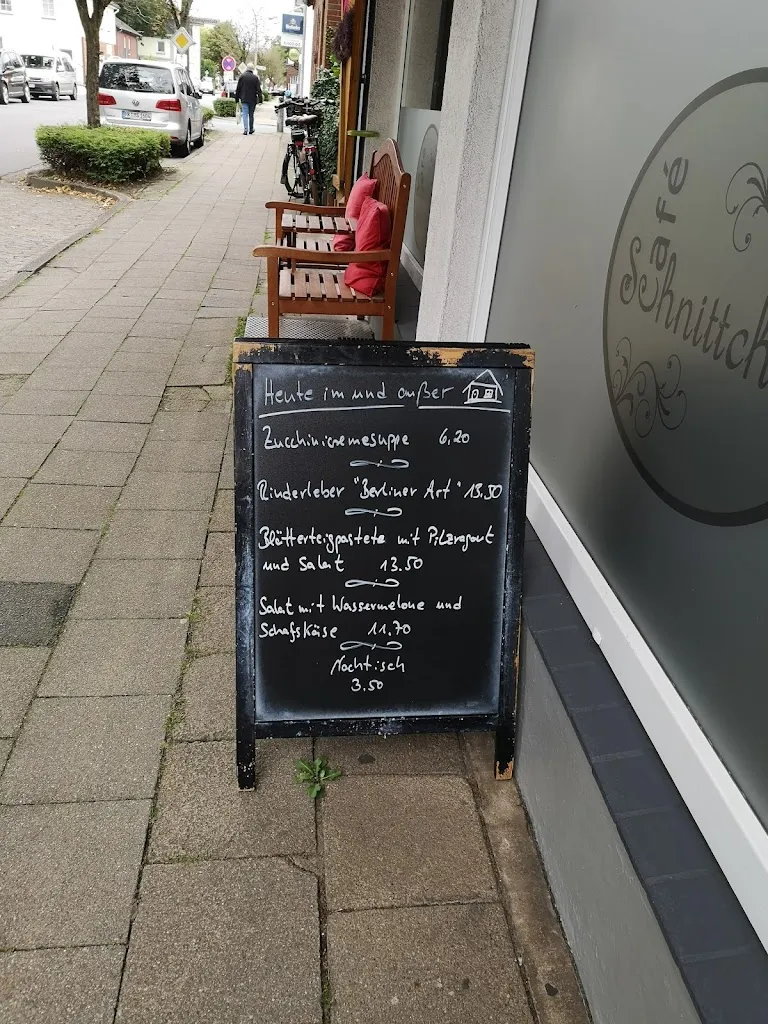 Heute im und außer
Zucchinicremesuppe 6,20
Rinderleber "Berliner Art" 13.50
Blätterteigpastete mit Pilzragout
und Salat 13.50
Salat mit Wassermelone und
Schafskäse 11,70
Nachtisch
3.50
Café
Schnittch